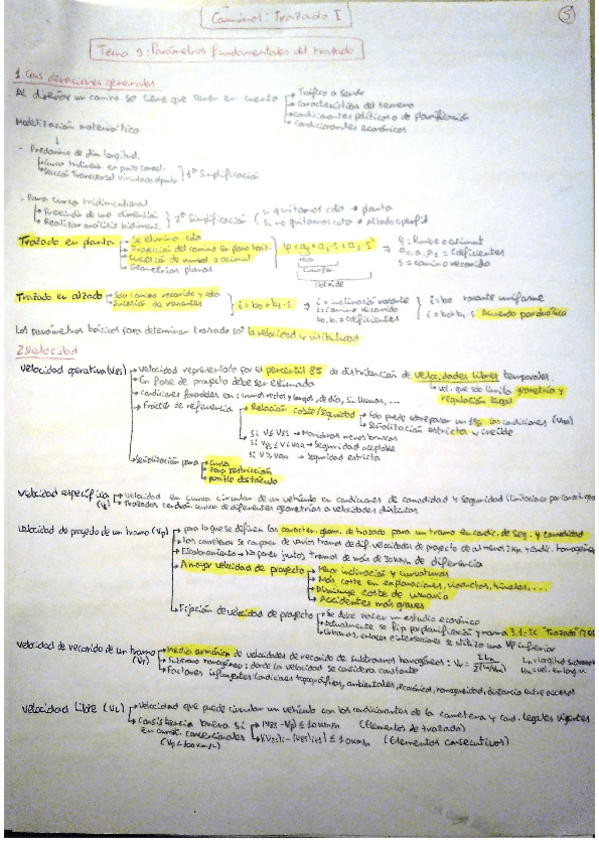 Caminos: Trazado I
5
Tema 9: Parámetros fundamentales del trazado
1. Consideraciones generales
Al diseñar un camino se tiene que tener en cuenta → Tráfico a servir
→ Características del terreno
→ Condicionantes políticos o de planificación
→ Condicionantes económicos
Modelización matemática
- Predominio de dim longitud.
1ª Simplificación
- Para curva tridimensional
→ Prescindir de una dimensión
→ Realizar análisis bidimens.
2ª Simplificación
Si quitamos cota → planta
Si no quitamos cota → Alzado o perfil
Trazado en planta → Se elimina cota
→ Proyección del camino en plano horiz.
→ Sucesión de rumbos o acimut
→ Geometrías planas
φ = a₀ + a₁·s + a₂·s²
recta
clotoide
φ: Rumbo o acimut
a₀, a₁, a₂ = Coeficientes
s = camino recorrido
Trazado en alzado → Solo camino recorrido y cota
→ Sucesión de rasantes
i = b₀ + b₁·s
i = inclinación rasante
s: camino recorrido
b₀, b₁ = coeficientes
i = b₀ rasante uniforme
i = b₀ + b₁·s Acuerdo parabólico
Los parámetros básicos para determinar trazado son la velocidad y visibilidad
2. Velocidad
Velocidad operativa (V85) → Velocidad representada por el percentil 85 de distribución de velocidades libres temporales.
→ vel. que solo limita geometría y regulación legal
→ En fase de proyecto debe ser estimada
→ Condiciones favorables en: tramos rectos y largos, de día, sin lluvias, ...
→ Fractil de referencia → Relación coste/seguridad → Solo puede sobrepasar un 1% las condiciones (V99)
→ Señalización estricta y creíble
Si V ≤ V85 → Maniobras menos bruscas
Si V85 ≤ V < V99 → Seguridad aceptable
Si V > V99 → Seguridad estricta
→ Señalización para → Curva
→ Zona restricción
→ posible obstáculo
Velocidad específica (Ve) → Velocidad en curva circular de un vehículo en condiciones de comodidad y seguridad
→ Trazados tendrán unión de diferentes geometrías a velocidades distintas
Velocidad de proyecto de un tramo (Vp) → para la que se definen las caracter. geom. de trazado para un tramo en condic. de seg. y comodidad
→ Las carreteras se componen de varios tramos de dif. velocidades de proyecto de al menos 2 km y condic. homogéneas
→ Escalonamiento → No poner juntos tramos de más de 30 km/h de diferencia
→ A mayor velocidad de proyecto → Menor inclinación y curvaturas
→ Más coste en explanaciones, viaductos, túneles, ...
→ Disminuye coste de usuario
→ Accidentes más graves
→ Fijación de velocidad de proyecto → Se debe hacer un estudio económico
→ Actualmente se fija por planificación y norma 3.1-IC "Trazado"
→ Urbanos, enlaces e intersecciones se utiliza una Vp inferior
Velocidad de recorrido de un tramo (Vr) → Media armónica de velocidades de recorrido de subtramos homogéneos: Vr =
→ Subtramo homogéneo: donde la velocidad se considera constante
→ Factores influyentes
Velocidad libre (VL) → Velocidad que puede circular un vehículo con los condicionantes de la carretera y cond. legales vigentes
→ Consistencia buena si
en carret. convencionales
(Vp < 100 km/h)
→ |V85 - Vp| ≤ 10 km/h (Elementos de trazado)
→ |(V85)i - (V85)i+1| ≤ 10 km/h (Elementos consecutivos)